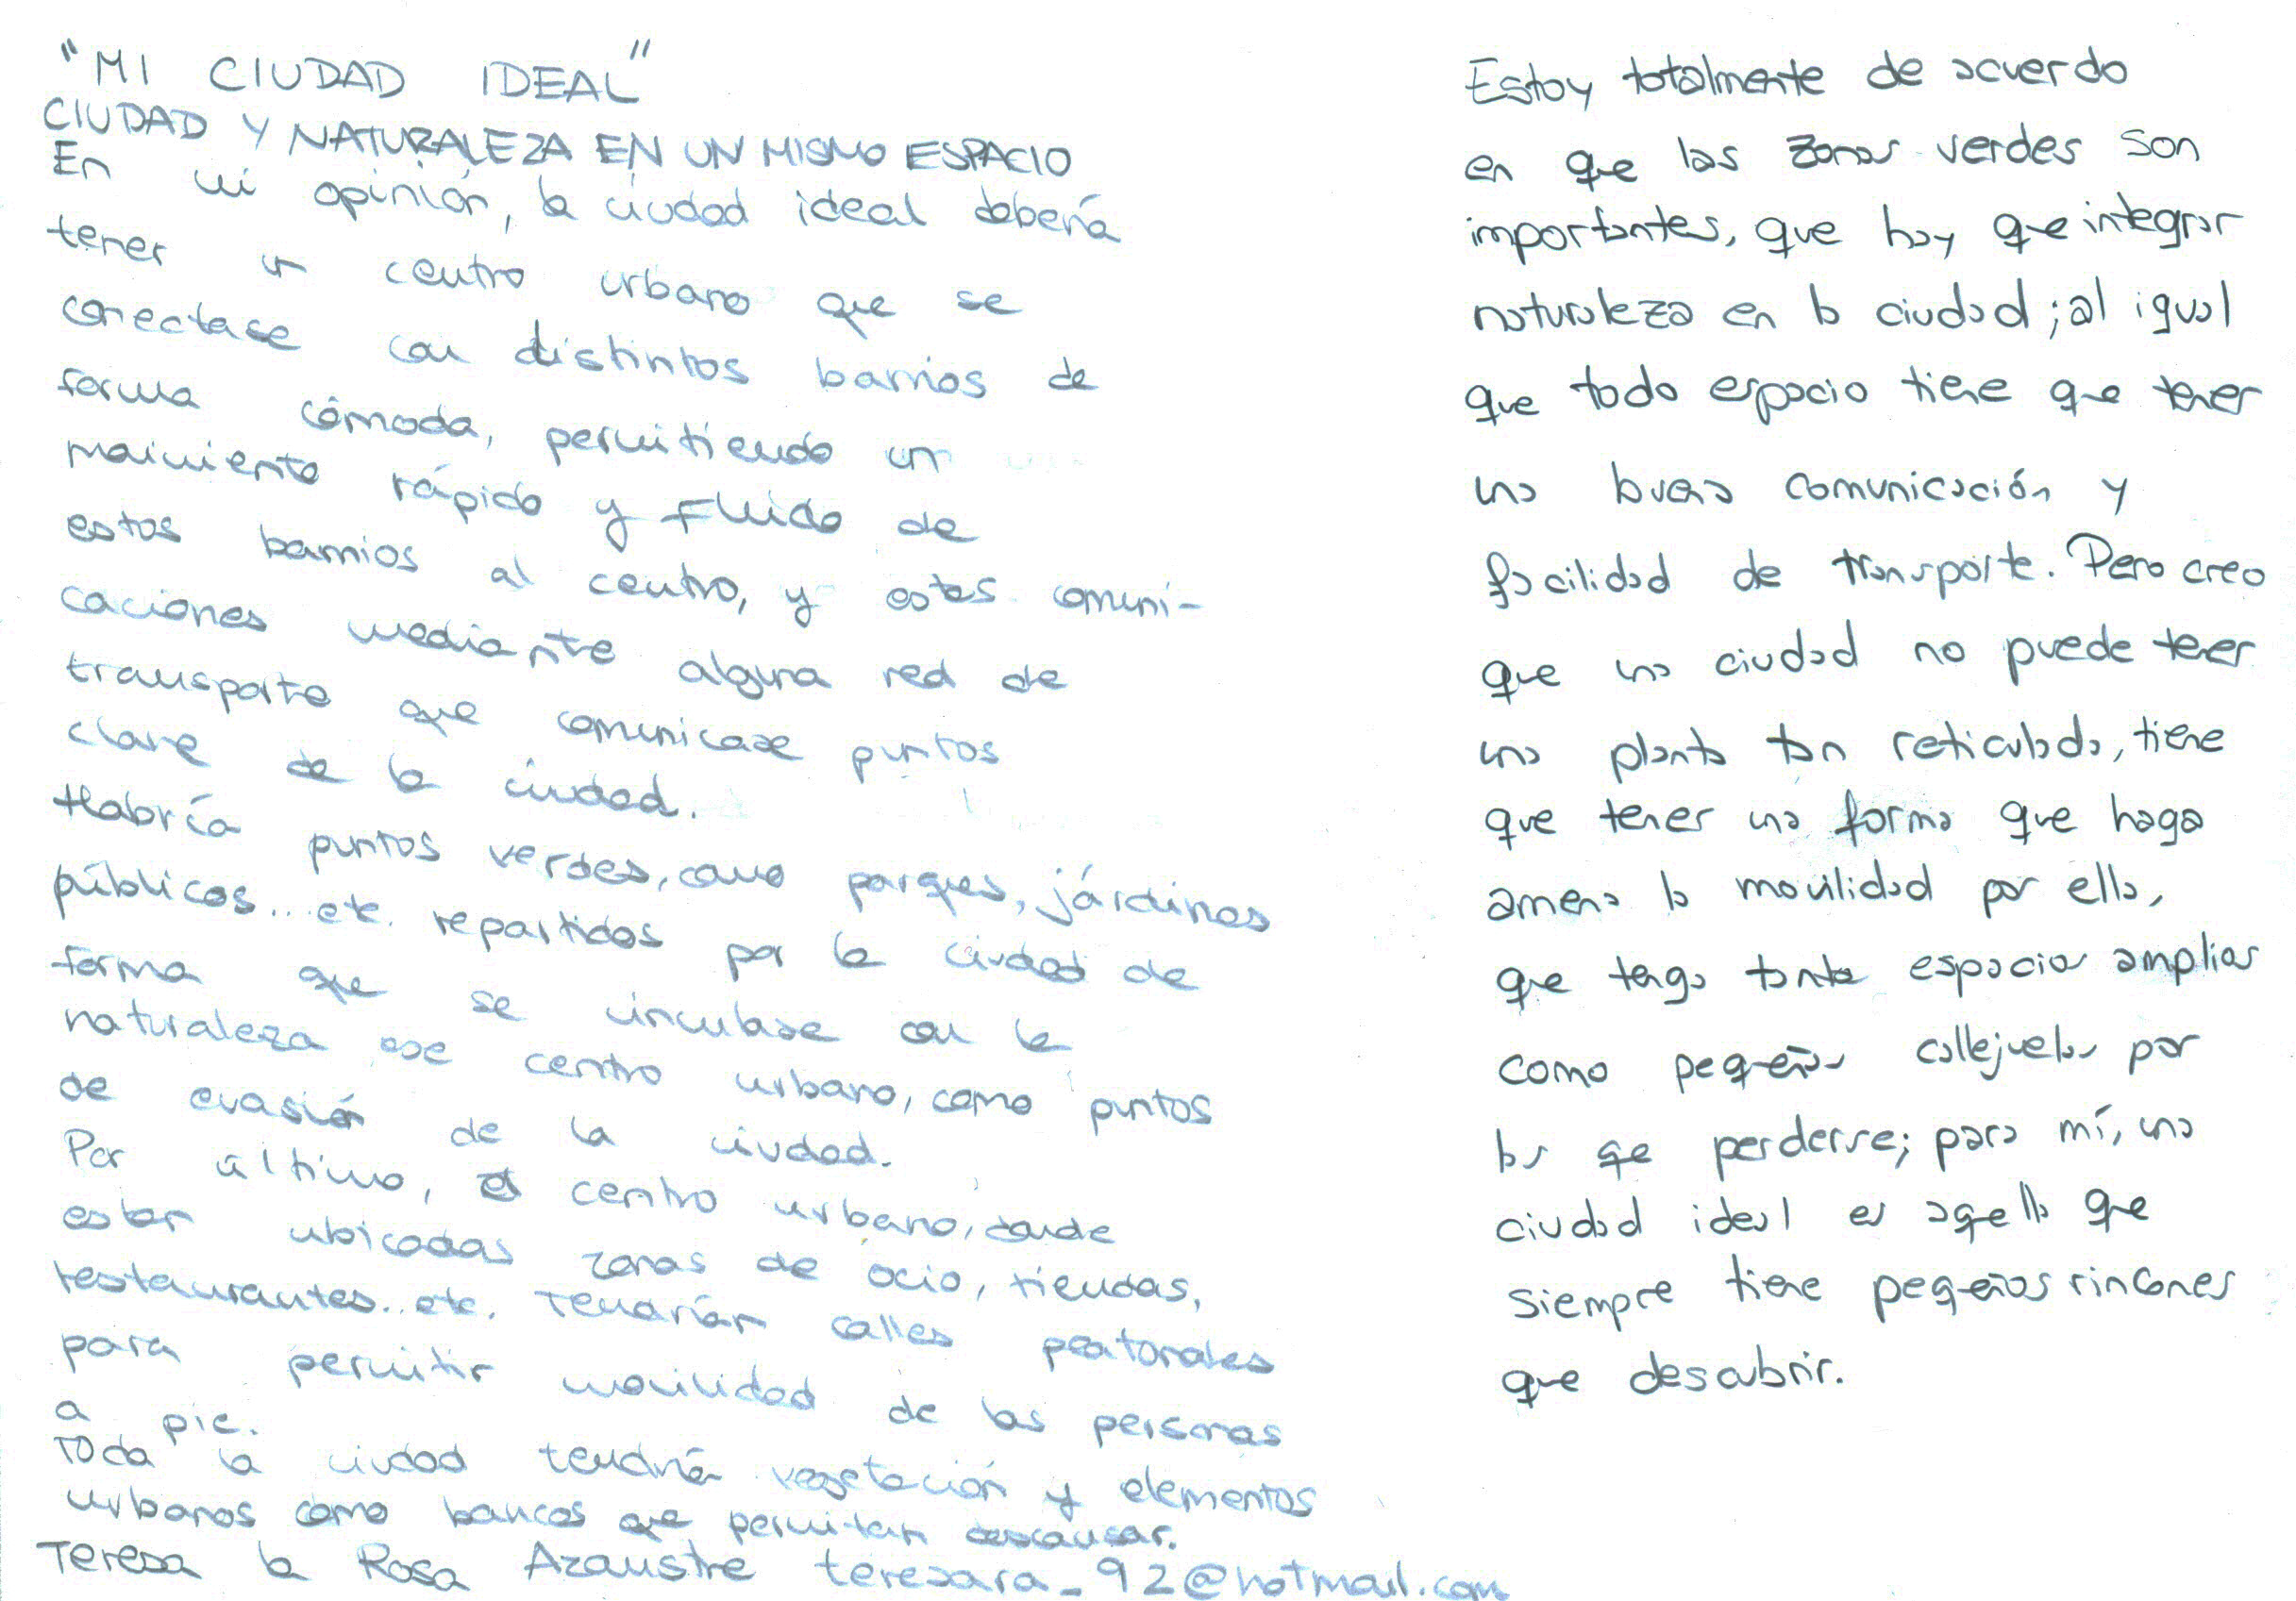 "MI CIUDAD IDEAL"
CIUDAD Y NATURALEZA EN UN MISMO ESPACIO
En mi opinión, la ciudad ideal debería
tener un centro urbano que se
conectase con distintos barrios de
forma cómoda, permitiendo un
movimiento rápido y fluido de
estos barrios al centro, y estas comuni-
caciones mediante alguna red de
transporte que comunicase puntos
clave de la ciudad.
Habría puntos verdes, como parques, járdines
públicos... etc. repartidos por la ciudad de
forma que se vinculase con la
naturaleza ese centro urbano, como puntos
de evasión de la ciudad.
Por último, el centro urbano, donde
estan ubicadas zonas de ocio, tiendas,
restaurantes.. etc. Tendrían calles peatonales
para permitir movilidad de las personas
a pie.
Toda la ciudad tendría vegetación y elementos
urbanos como bancos que permitan descansar.
Teresa la Rosa Azaustre teresara_92@hotmail.com
Estoy totalmente de acuerdo
en que las zonas verdes son
importantes, que hay que integrar
naturaleza en la ciudad; al igual
que todo espacio tiene que tener
una buena comunicación y
facilidad de transporte. Pero creo
que una ciudad no puede tener
una planta tan reticulada, tiene
que tener una forma que haga
amena la movilidad por ella,
que tenga tanto espacios amplios
como pequeñas callejuelas por
las que perderse; para mí, una
ciudad ideal es aquella que
siempre tiene pequeños rincones
que descubrir.